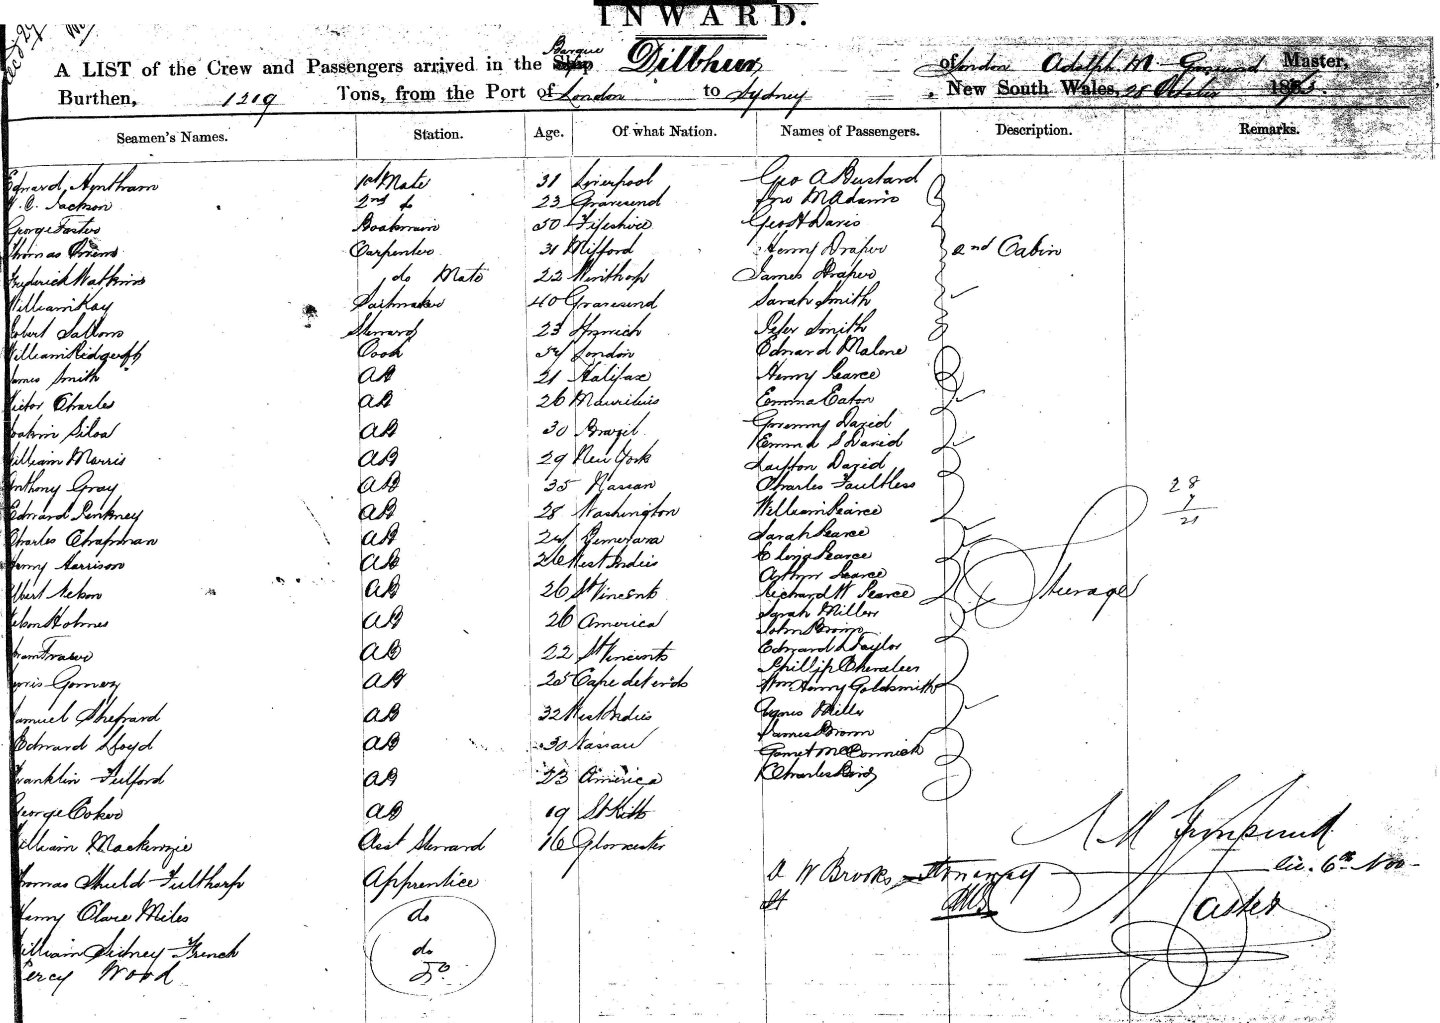 INWARD.
A LIST of the Crew and Passengers arrived in the Barque Dilbhur, of London Adolph M Master,
Burthen, 1219 Tons, from the Port of London to Sydney, New South Wales, 28 October 18
Seamen's Names. Station. Age. Of what Nation. Names of Passengers. Description. Remarks.
Edward 1st Mate 31 Liverpool Geo A Bustard
Jackson 2nd do 23 Gravesend Jno McAdam
George Foster Boatswain 50 Fifeshire Geo H Davis
Thomas Carpenter 31 Milford Henry Draper 2nd Cabin
Frederick Watkins do Mate 22 Winthorp James Draper
William Kay Sailmaker 40 Gravesend Sarah Smith
Robert Steward 23 Ipswich Peter Smith
William Cook London Edward Malone
James Smith AB 21 Halifax Henry Pearce
Victor Charles AB 26 Mauritius Emma Eaton
Joakim Silva AB 30 Brazil David
Emma S David
William Morris AB 29 New York Layton David
Anthony Gray AB 35 Nassau Charles Faultless 28
Edward Pinkney AB 28 Washington William Pearce 7
21
Charles Chapman AB Demerara Sarah Pearce
Henry Harrison AB 26 West Indies Eliza Pearce
Arthur Pearce
Albert AB 26 St Vincent Richard W Pearce Steerage
Nelson Holmes AB 26 America Sarah Miller
John Brown
Fraser AB 22 St Vincents Edward Taylor
Phillip Chevalier
Gomez AB 25 Cape de Verds Wm Henry Goldsmith
Samuel Shepard AB 32 West Indies Agnes Miller
James Brown
Edward Lloyd AB 30 Nassau McCormick
Franklin Fulford AB 23 America Charles
George Coker AB 19 St Kitts
William Mackenzie Asst Steward 16 Gloucester
Thomas Shield Fulthorp Apprentice A W Brooks 6th Nov
Henry Clare Miles do Master
William Sidney French do
Percy Wood Do.